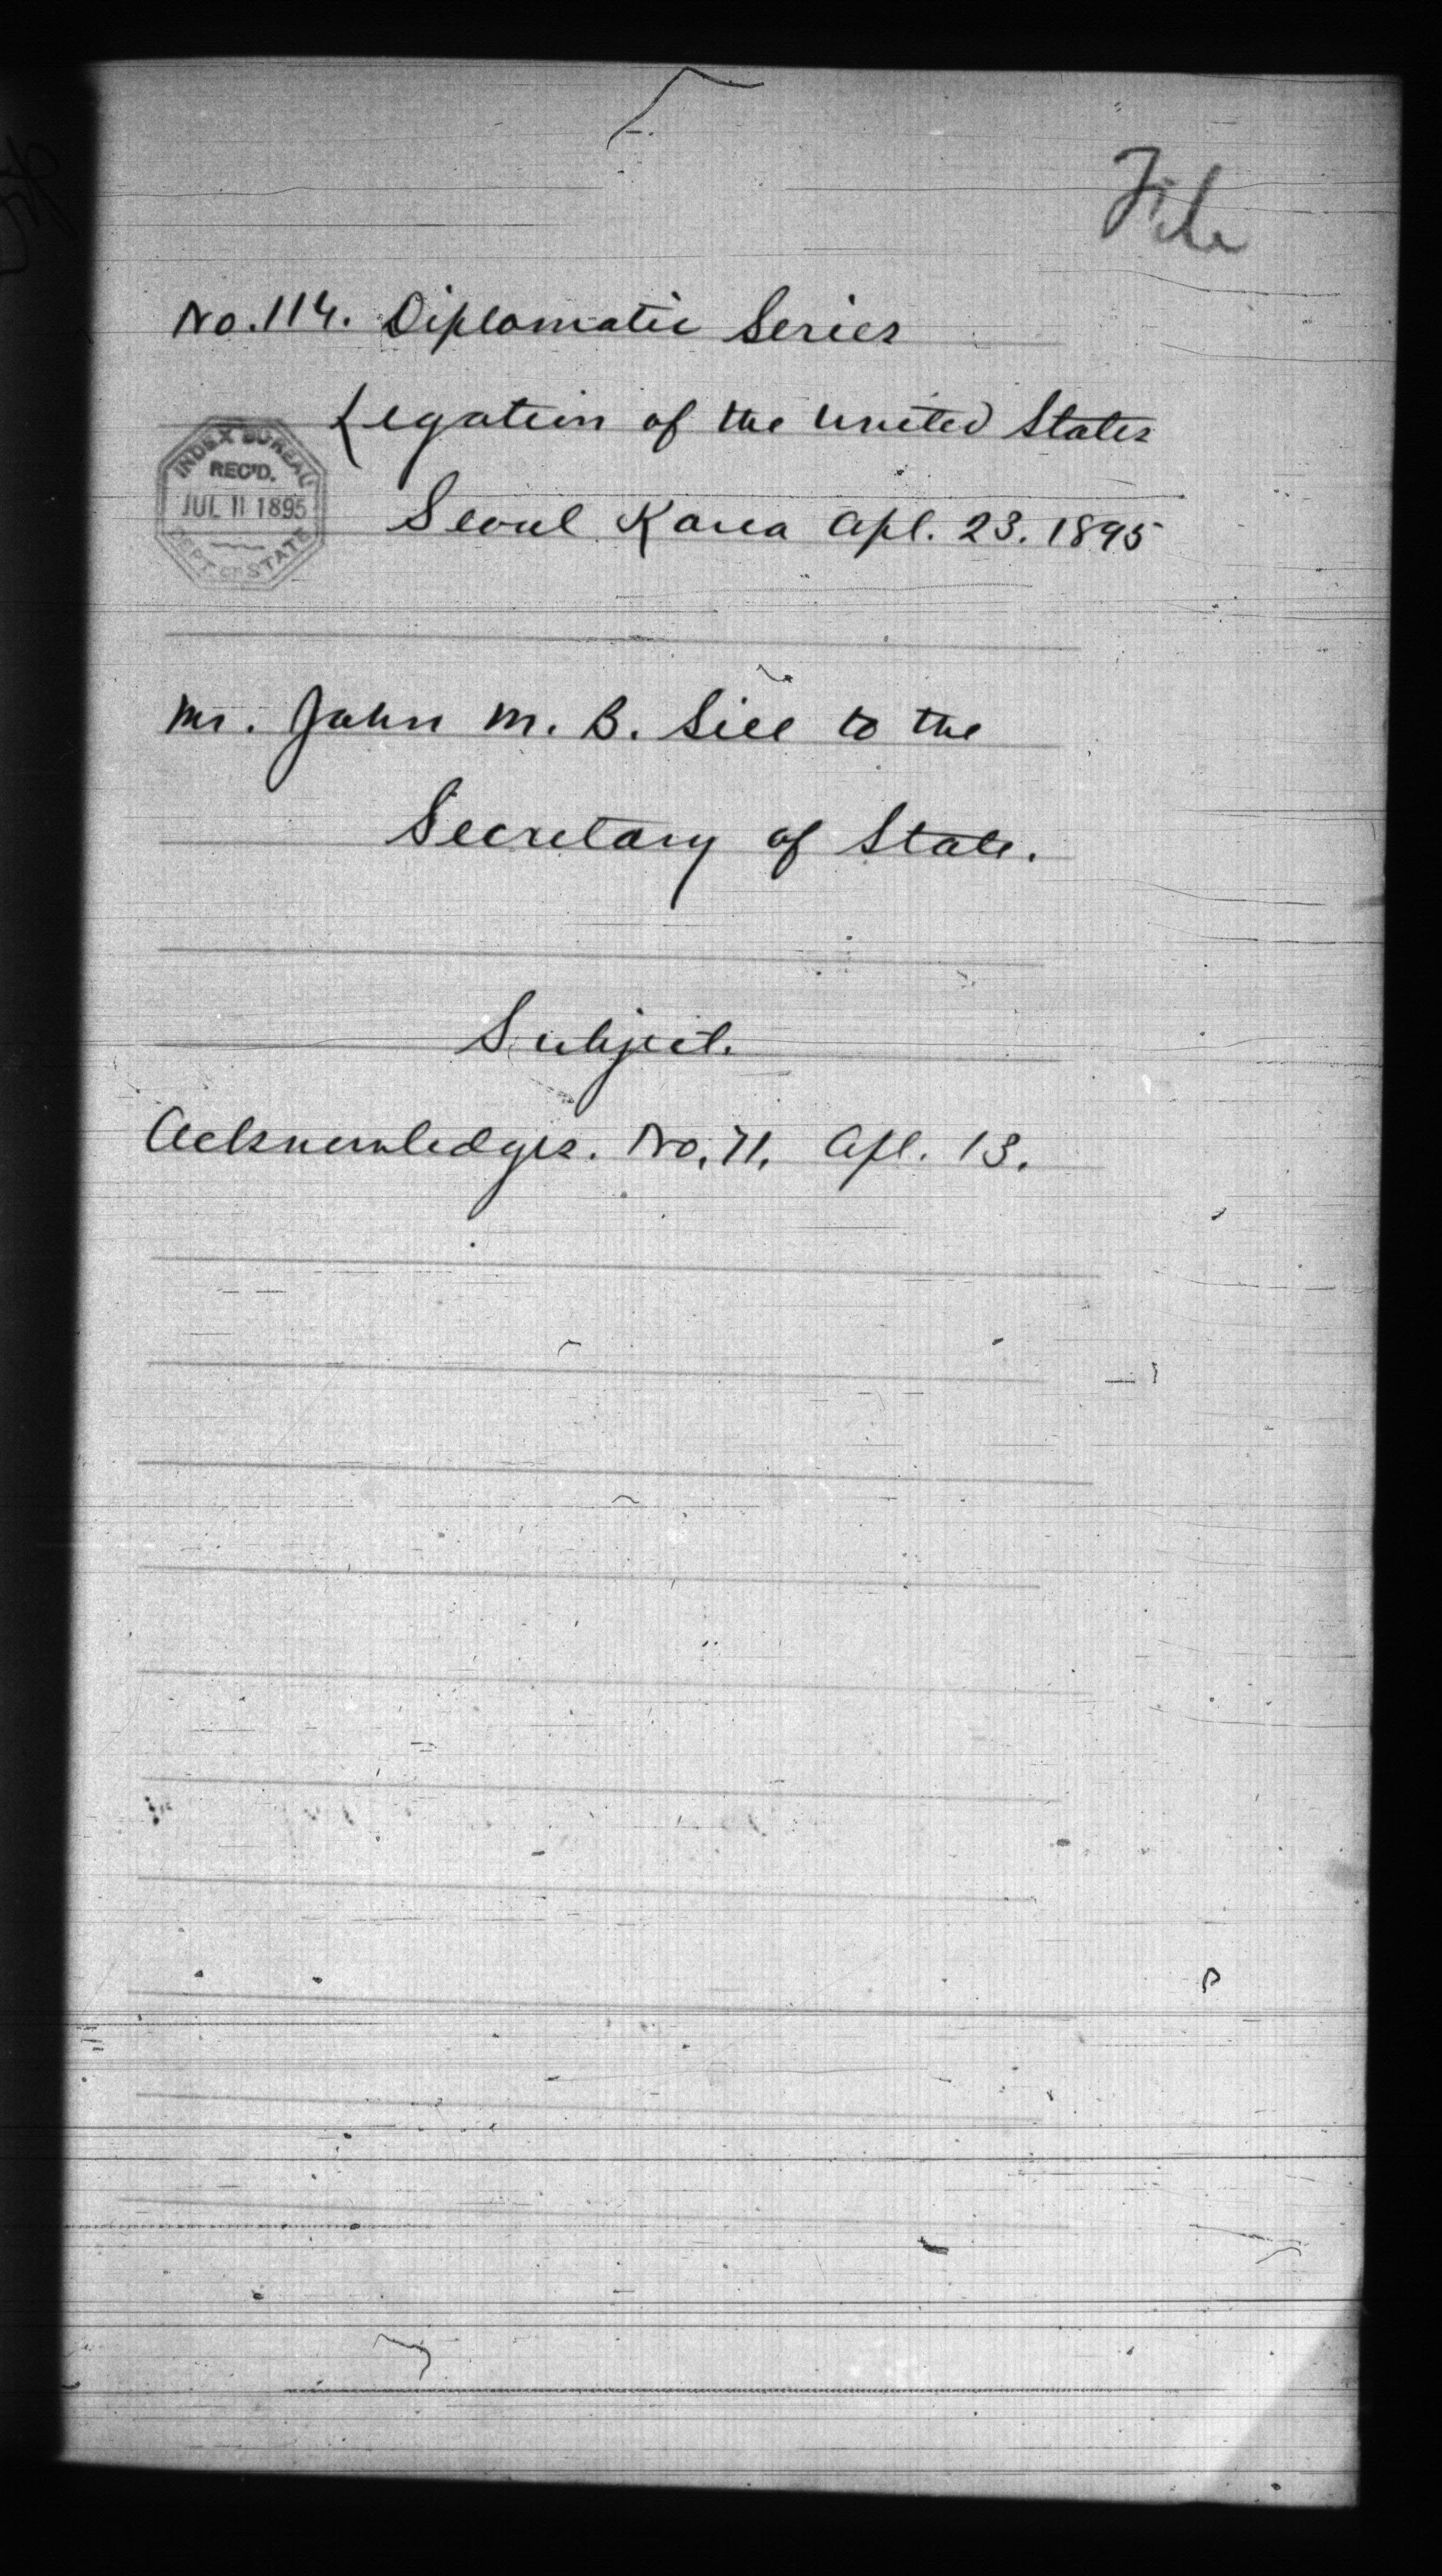 File
No. 114. Diplomatic Series
Legation of the United States
INDEX BUREAU
REC'D.
JUL 11 1895
DEPT. OF STATE
Seoul Korea Apl. 23. 1895
Mr. John M. B. Sill to the
Secretary of State.
Subject.
Acknowledges. No. 71. Apl. 13.